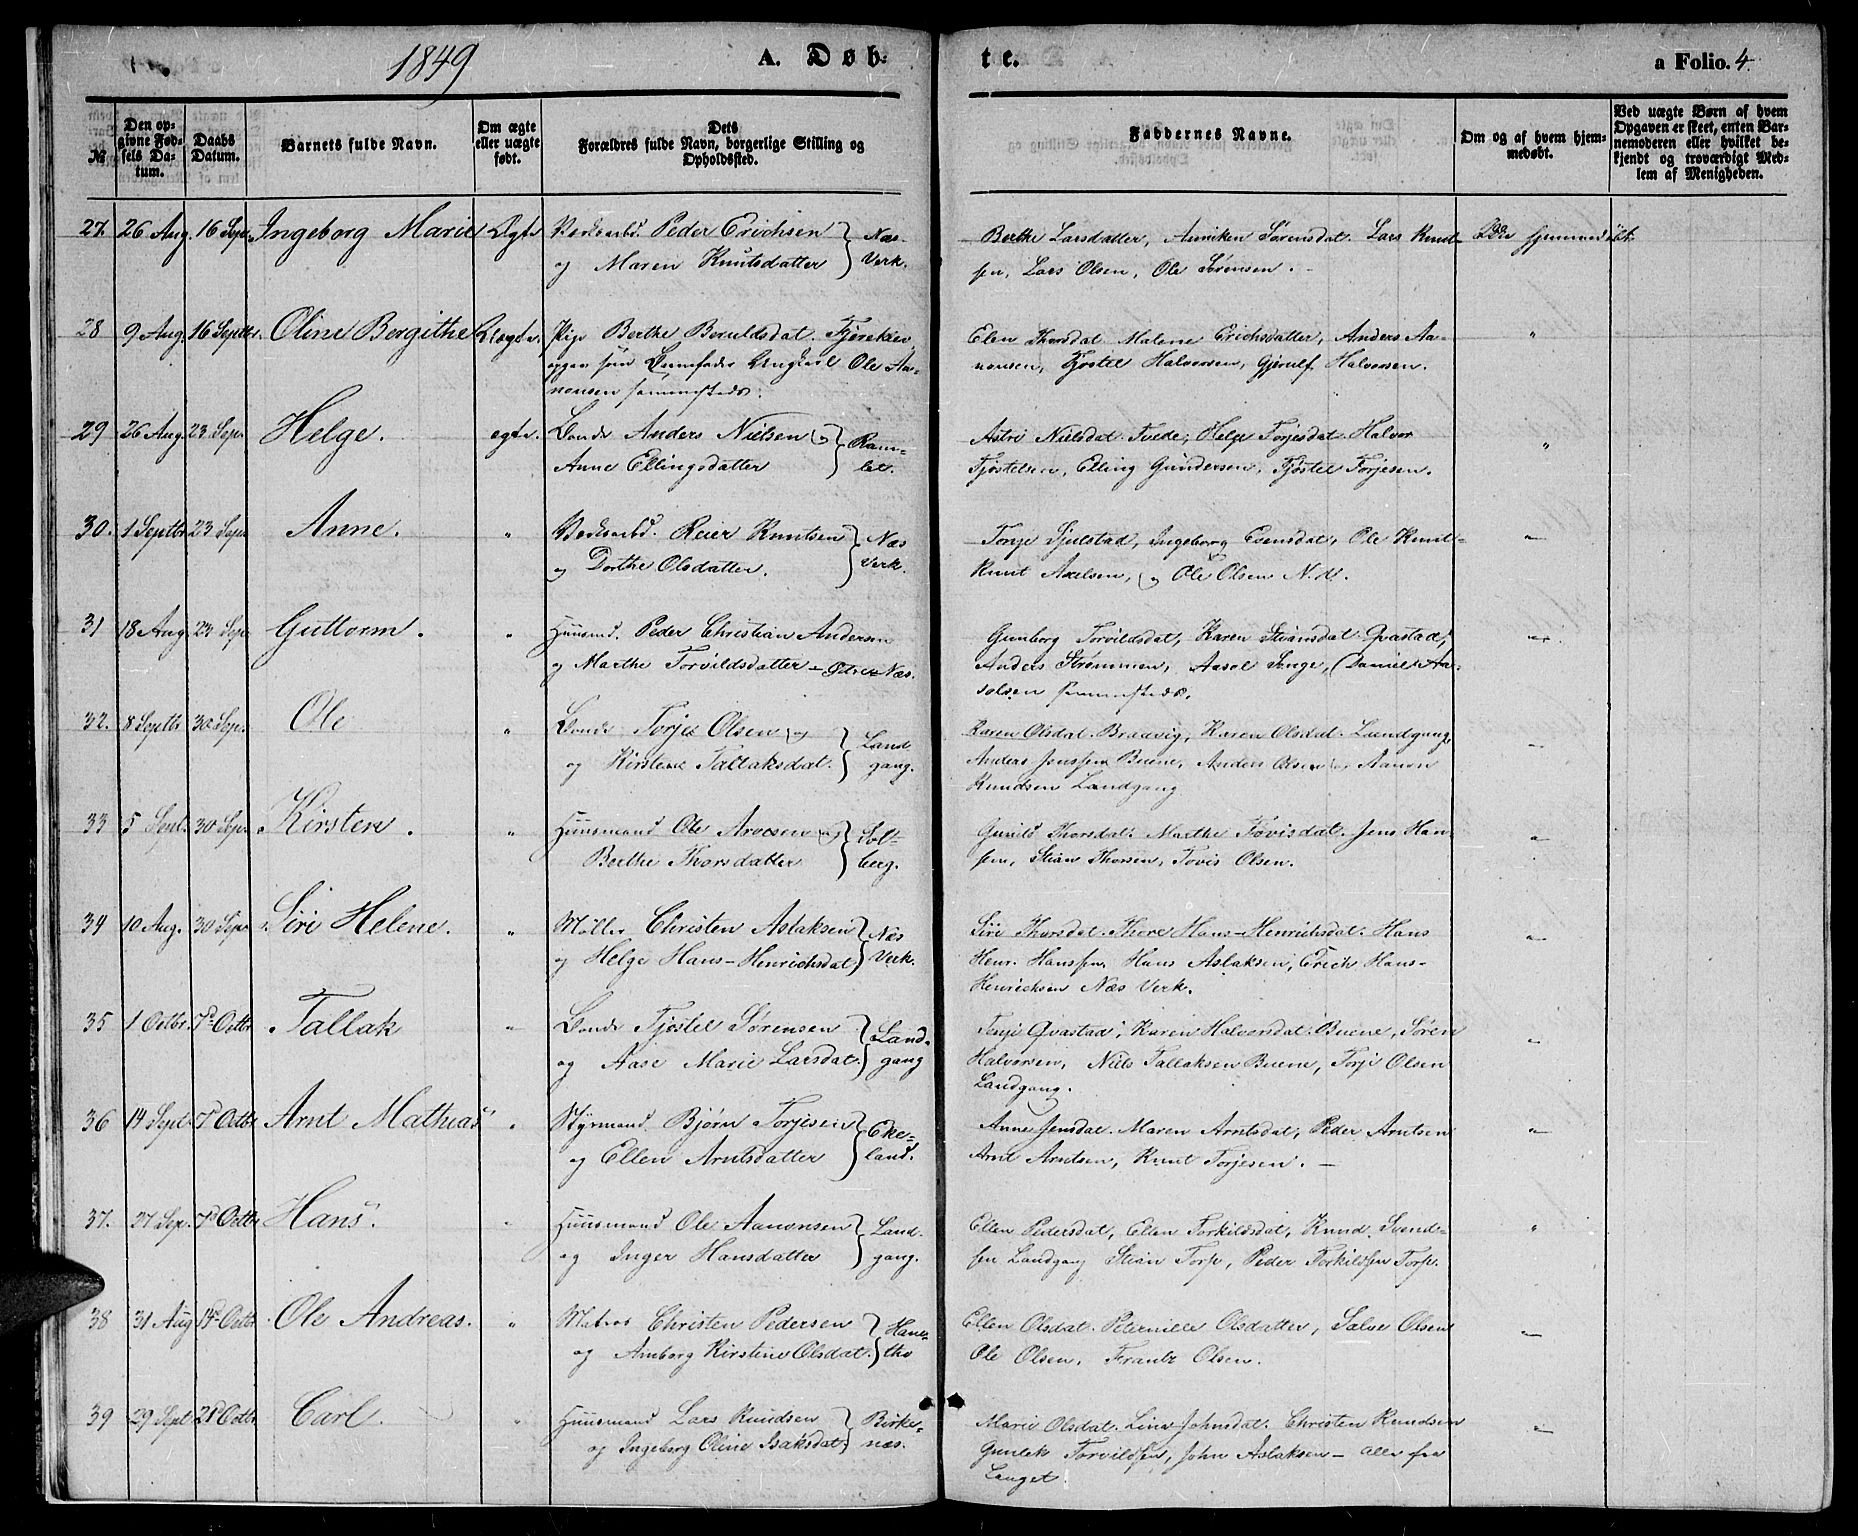 1849
A. Døb-
te.
a Folio. 4.
№
Den op-
givne Fød-
sels Da-
tum.
Daabs
Datum.
Barnets fulde Navn.
Om ægte
eller uægte
født.
Dets
Forældres fulde Navn, borgerlige Stilling og
Opholdssted.
Faddernes Navne.
Om og af hvem hjem-
medøbt.
Ved uægte Børn af hvem
Opgaven er skeet, enten Bar-
nemoderen eller hvilket be-
kjendt og troværdigt Med-
lem af Menigheden.
27. 26 Aug. 16 Sept. Ingeborg Marie Ægte Verksarbd. Peder Erichsen
og Maren Knutsdatter
Næs
Verk.
Berthe Larsdatter, Anniken Sørensdat. Lars Knud-
sen, Lars Olsen, Ole Sørensen.
hjemmedøbt.
28 9 Aug 16 Septbr. Oline Bergithe Uægte. Pige Berthe Beruldsdat.
opgav som Barnefader Ungkarl Ole Aa-
nonsen sammesteds.
Elen Thorsdal. Malene Erichsdatter, Anders Aa-
nonsen, Tjøstel Halvorsen, Gjerulf Halvorsen.
"
29 26 Aug 23 Sep. Helge. egte. Bonde Anders Nielsen og
Anne Ellingsdatter
Ram-
let.
Astri Nielsdat. Tvede, Helge Torjesdat. Halvor
Tjøstelsen, Elling Gundersen, Tjøstel Torjesen.
"
30. 1 Septbr 23 Sep. Anne. " Verksarbd. Reier Knutsen
og Dorthe Olsdatter.
Næs
Verk.
Torje Sjulstad, Ingeborg Evensdat, Ole Knud-
Knut Axelsen, og Ole Olsen
"
31 18 Aug 23 Sep. Guttorm. " Huusmd. Peder Christian Andersen
og Marthe Torvildsdatter - Østre Næs.
Gunborg Torvildsdat, Karen Stiansdat. Qvastad,
Anders Strømmen, Aasol Songe, Daniel Aa-
solsen sammesteds.
32. 8 Septbr 30 Sep. Ole " Bonde Torje Olsen og
og Kirstene Tallaksdat.
Land
gang.
Karen Olsdat. Bradvig, Karen Olsdat. Landgang,
Anders Jenssen Buene, Anders Olsen og Aanon
Knudsen Landgang
33 5 Sept. 30 Sep. Kirsten. " Huusmand Ole Arvesen og
Berthe Thorsdatter
Sol-
berg.
Gunild Thorsdat. Marthe Tovisdat. Jens Han-
sen, Stian Thorsen, Tovis Olsen.
"
34 10 Aug. 30 Sep. Siri Helene. " Møller Christen Aslaksen
og Helge Hans-Henrichsdat.
Næs
Verk.
Siri Thorsdat. Thore Hans-Henrichsdat. Hans
Henr. Hanssen, Hans Aslaksen, Erich Hans-
Henrichsen Næs Verk.
35 1 Octbr. 7de Octbr Tallak " Bonde Tjøstel Sørensen
og Aase Marie Larsdat.
Land-
gang
Torje Qvastad, Karen Halvorsdat. Buene, Søren
Halvorsen, Niels Tallaksen Buene, Torje Olsen
Landgang.
36 14 Sept. 7de Octbr Arnt Mathias " Styrmand Bjørn Torjesen
og Ellen Arntsdatter
Eke-
land.
Anne Jensdat. Maren Arntsdat, Peder Arntsen
Arnt Arntsen, Knut Torjesen. -
37. Sep. 7de Octbr Hans. " Huusmand Ole Aanonsen
og Inger Hansdatter
Land-
gang.
Ellen Pedersdat, Ellen Torkildsdat, Knud Svend-
sen Landgang Stian Torp, Peder Torkildsen Torp.
38 31 Aug 14de Octbr. Ole Andreas. " Matros Christen Pedersen
og Amborg Kirstine Olsdat.
Hane-
tho
Ellen Olsdat. Peternille Olsdatter, Salve Olsen
Ole Olsen, Frantz Olsen.
39 29 Sept 21de Octbr Carl. " Huusmand Lars Knudsen
og Ingeborg Oline Isaksdat.
Birke-
næs.
Marie Olsdat. Line Johnsdat. Christen Knudsen
Gunlek Torvildsen, John Aslaksen - alle fra
Langet.